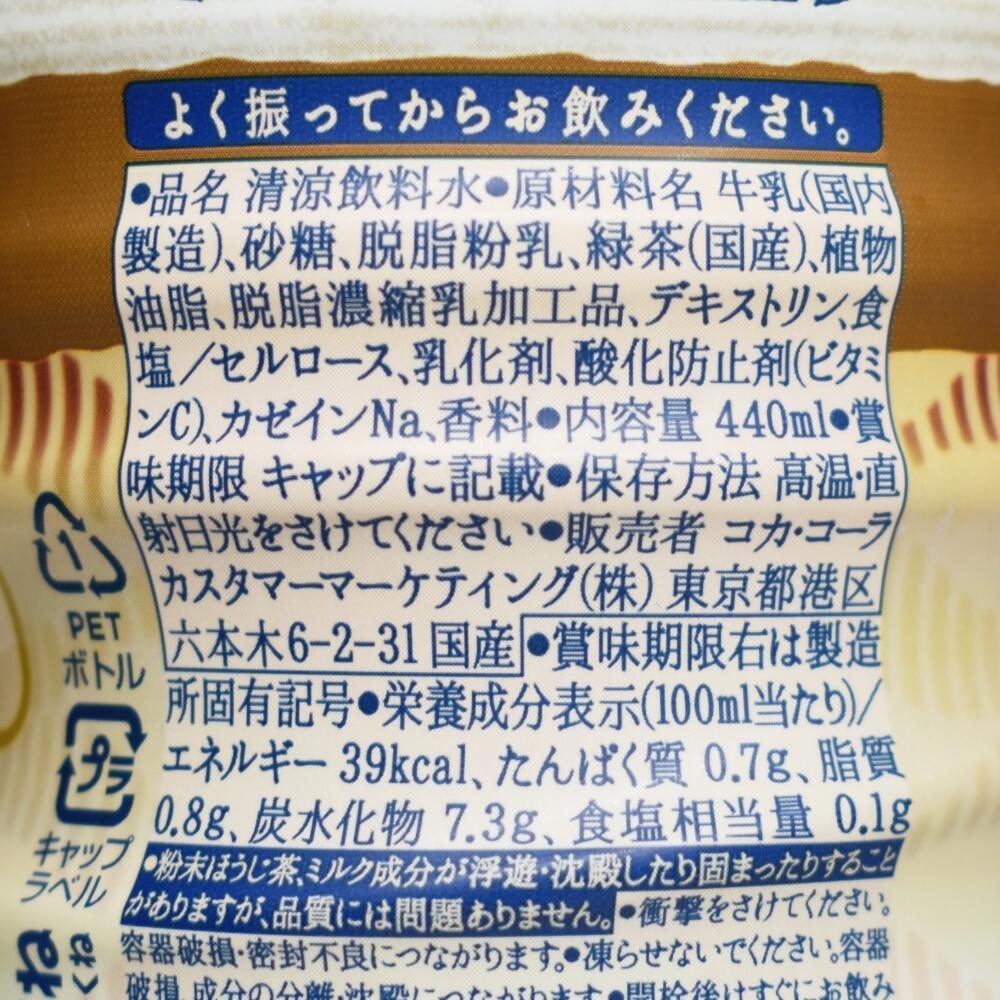 よく振ってからお飲みください。
●品名 清涼飲料水●原材料名 牛乳(国内
製造)、砂糖、脱脂粉乳、緑茶(国産)、植物
油脂、脱脂濃縮乳加工品、デキストリン、食
塩/セルロース、乳化剤、酸化防止剤(ビタミ
ンC)、カゼインNa、香料●内容量 440ml●賞
味期限 キャップに記載●保存方法 高温・直
射日光をさけてください●販売者 コカ・コーラ
カスタマーマーケティング(株) 東京都港区
六本木6-2-31 国産
●賞味期限右は製造
所固有記号●栄養成分表示(100ml当たり)/
エネルギー 39kcal、たんぱく質 0.7g、脂質
0.8g、炭水化物 7.3g、食塩相当量 0.1g
●粉末ほうじ茶、ミルク成分が浮遊・沈殿したり固まったりすること
がありますが、品質には問題ありません。●衝撃をさけてください。
容器破損・密封不良につながります。●凍らせないでください。容器
破損、成分の分離・沈殿につながります。●開栓後はすぐにお飲み
1
PET
ボトル
プラ
キャップ
ラベル